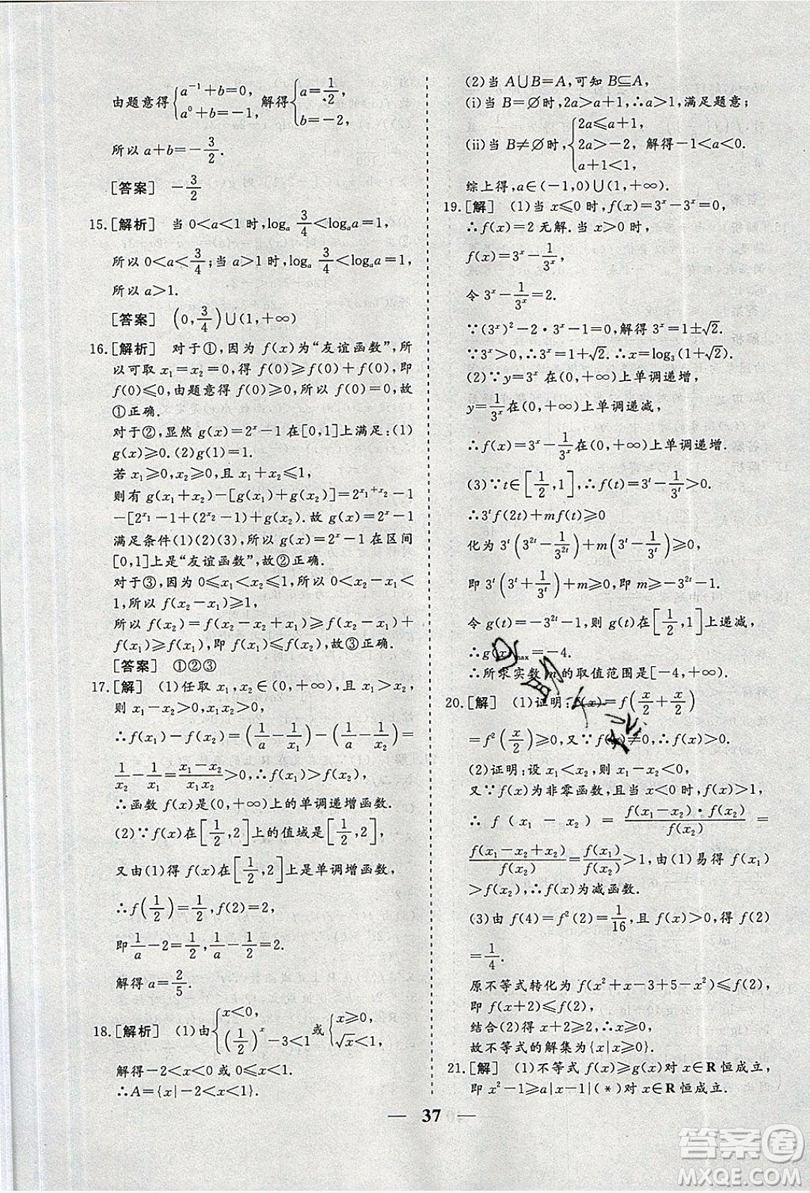 由题意得{a⁻¹+b=0, a⁰+b=-1, 解得{a=1/2, 
所以 a+b=-3/2.
[答案] -3/2
15. [解析] 当 0<a<1 时, logₐ 3/4<logₐa=1,
所以 0<a<3/4; 当 a>1 时, logₐ 3/4<logₐa=1,
所以 a>1.
[答案] (0, 3/4)∪(1,+∞)
16. [解析] 对于①,因为 f(x)为“友谊函数”,所
以可取 x₁=x₂=0,得 f(0)≥f(0)+f(0),即
f(0)≤0,由题意得 f(0)≥0,所以 f(0)=0,故
①正确.
对于②,显然 g(x)=2ˣ-1 在[0,1]上满足:(1)
g(x)≥0.(2)g(1)=1.
若 x₁≥0,x₂≥0,且 x₁+x₂≤1,
则有 g(x₁+x₂)-[g(x₁)+g(x₂)]=2^(x₁+x₂)-1
-[2^(x₁)-1+(2^(x₂)-1)]≥0. 故 g(x)=2ˣ-1
满足条件(1)(2)(3),所以 g(x)=2ˣ-1 在区间
[0,1]上是“友谊函数”,故②正确.
对于③,因为 0≤x₁<x₂≤1,所以 0<x₂-x₁<
1,所以 f(x₂-x₁)≥0,
所以 f(x₂)=f(x₂-x₁+x₁)≥f(x₂-x₁)+
f(x₁)≥f(x₁),即 f(x₁)≤f(x₂),故③正确.
[答案] ①②③
17. [解] (1)任取 x₁,x₂∈(0,+∞),且 x₁>x₂,
则 x₁-x₂>0,x₁x₂>0,
∴f(x₁)-f(x₂)=(1/a-1/x₁)-(1/a-1/x₂)=
1/x₂-1/x₁=(x₁-x₂)/(x₁x₂)>0,即 f(x₁)>f(x₂),
∴函数 f(x)是(0,+∞)上的单调递增函数.
(2)∵f(x)在[1/2,2]上的值域为[1/2,2],
又由(1)得 f(x)在[1/2,2]上是单调增函数,
∴f(1/2)=1/2,f(2)=2,
即1/a-2=1/2,1/a-1/2=2.
解得 a=2/5.
18. [解析] (1)由{x<0, (1/2)ˣ-3<1 或{x≥0, √x<1.
解得-2<x<0 或 0≤x<1,
∴A={x|-2<x<1}.
(2)当 A∪B=A,可知 B⊆A,
(i)当 B=∅时,2a>a+1,∴a>1,满足题意;
(ii)当 B≠∅时,{2a≤a+1, 2a>-2, a+1<1, 解得-1<a<0.
综上得,a∈(-1,0)∪(1,+∞).
19. [解] (1)当 x≤0 时,f(x)=3ˣ-3ˣ=0,
∴f(x)=2 无解.当 x>0 时,
f(x)=3ˣ-1/3ˣ,
令 3ˣ-1/3ˣ=2.
∵(3ˣ)²-2·3ˣ-1=0,解得 3ˣ=1±√2.
∵3ˣ>0,∴3ˣ=1+√2.∴x=log₃(1+√2).
(2)∵y=3ˣ在(0,+∞)上单调递增,
y=1/3ˣ在(0,+∞)上单调递减,
∴f(x)=3ˣ-1/3ˣ在(0,+∞)上单调递增.
(3)∵t∈[1/2,1],∴f(t)=3ᵗ-1/3ᵗ>0.
∴3ᵗf(2t)+mf(t)≥0
化为 3ᵗ(3²ᵗ-1/3²ᵗ)+m(3ᵗ-1/3ᵗ)≥0,
即 3ᵗ(3ᵗ+1/3ᵗ)+m≥0,即 m≥-3²ᵗ-1.
令 g(t)=-3²ᵗ-1,则 g(t)在[1/2,1]上递减,
∴g(x)max=-4.
∴所求实数 m 的取值范围是[-4,+∞).
20. [解] (1)证明:f(x)=f(x/2+x/2)
=f²(x/2)≥0,又∵f(x)≠0,∴f(x)>0.
(2)证明:设 x₁<x₂,则 x₁-x₂<0,
又∵f(x)为非零函数,且当 x<0 时,f(x)>1,
∴f(x₁-x₂)=f(x₁-x₂)·f(x₂)/f(x₂)=
f(x₁-x₂+x₂)/f(x₂)=f(x₁)/f(x₂)>1,∴f(x₁)
>f(x₂),∴f(x)为减函数.
(3)由 f(4)=f²(2)=1/16,且 f(x)>0,得 f(2)
=1/4.
原不等式转化为 f(x²+x-3+5-x²)≤f(2),
即 f(x+2)≤f(2),
结合(2)得 x+2≥2,∴x≥0,
故不等式的解集为{x|x≥0}.
21. [解] (1)不等式 f(x)≥g(x)对 x∈R 恒成立,
即 x²-1≥a|x-1|(*)对 x∈R 恒成立.
37
答案圈
MXQE.COM